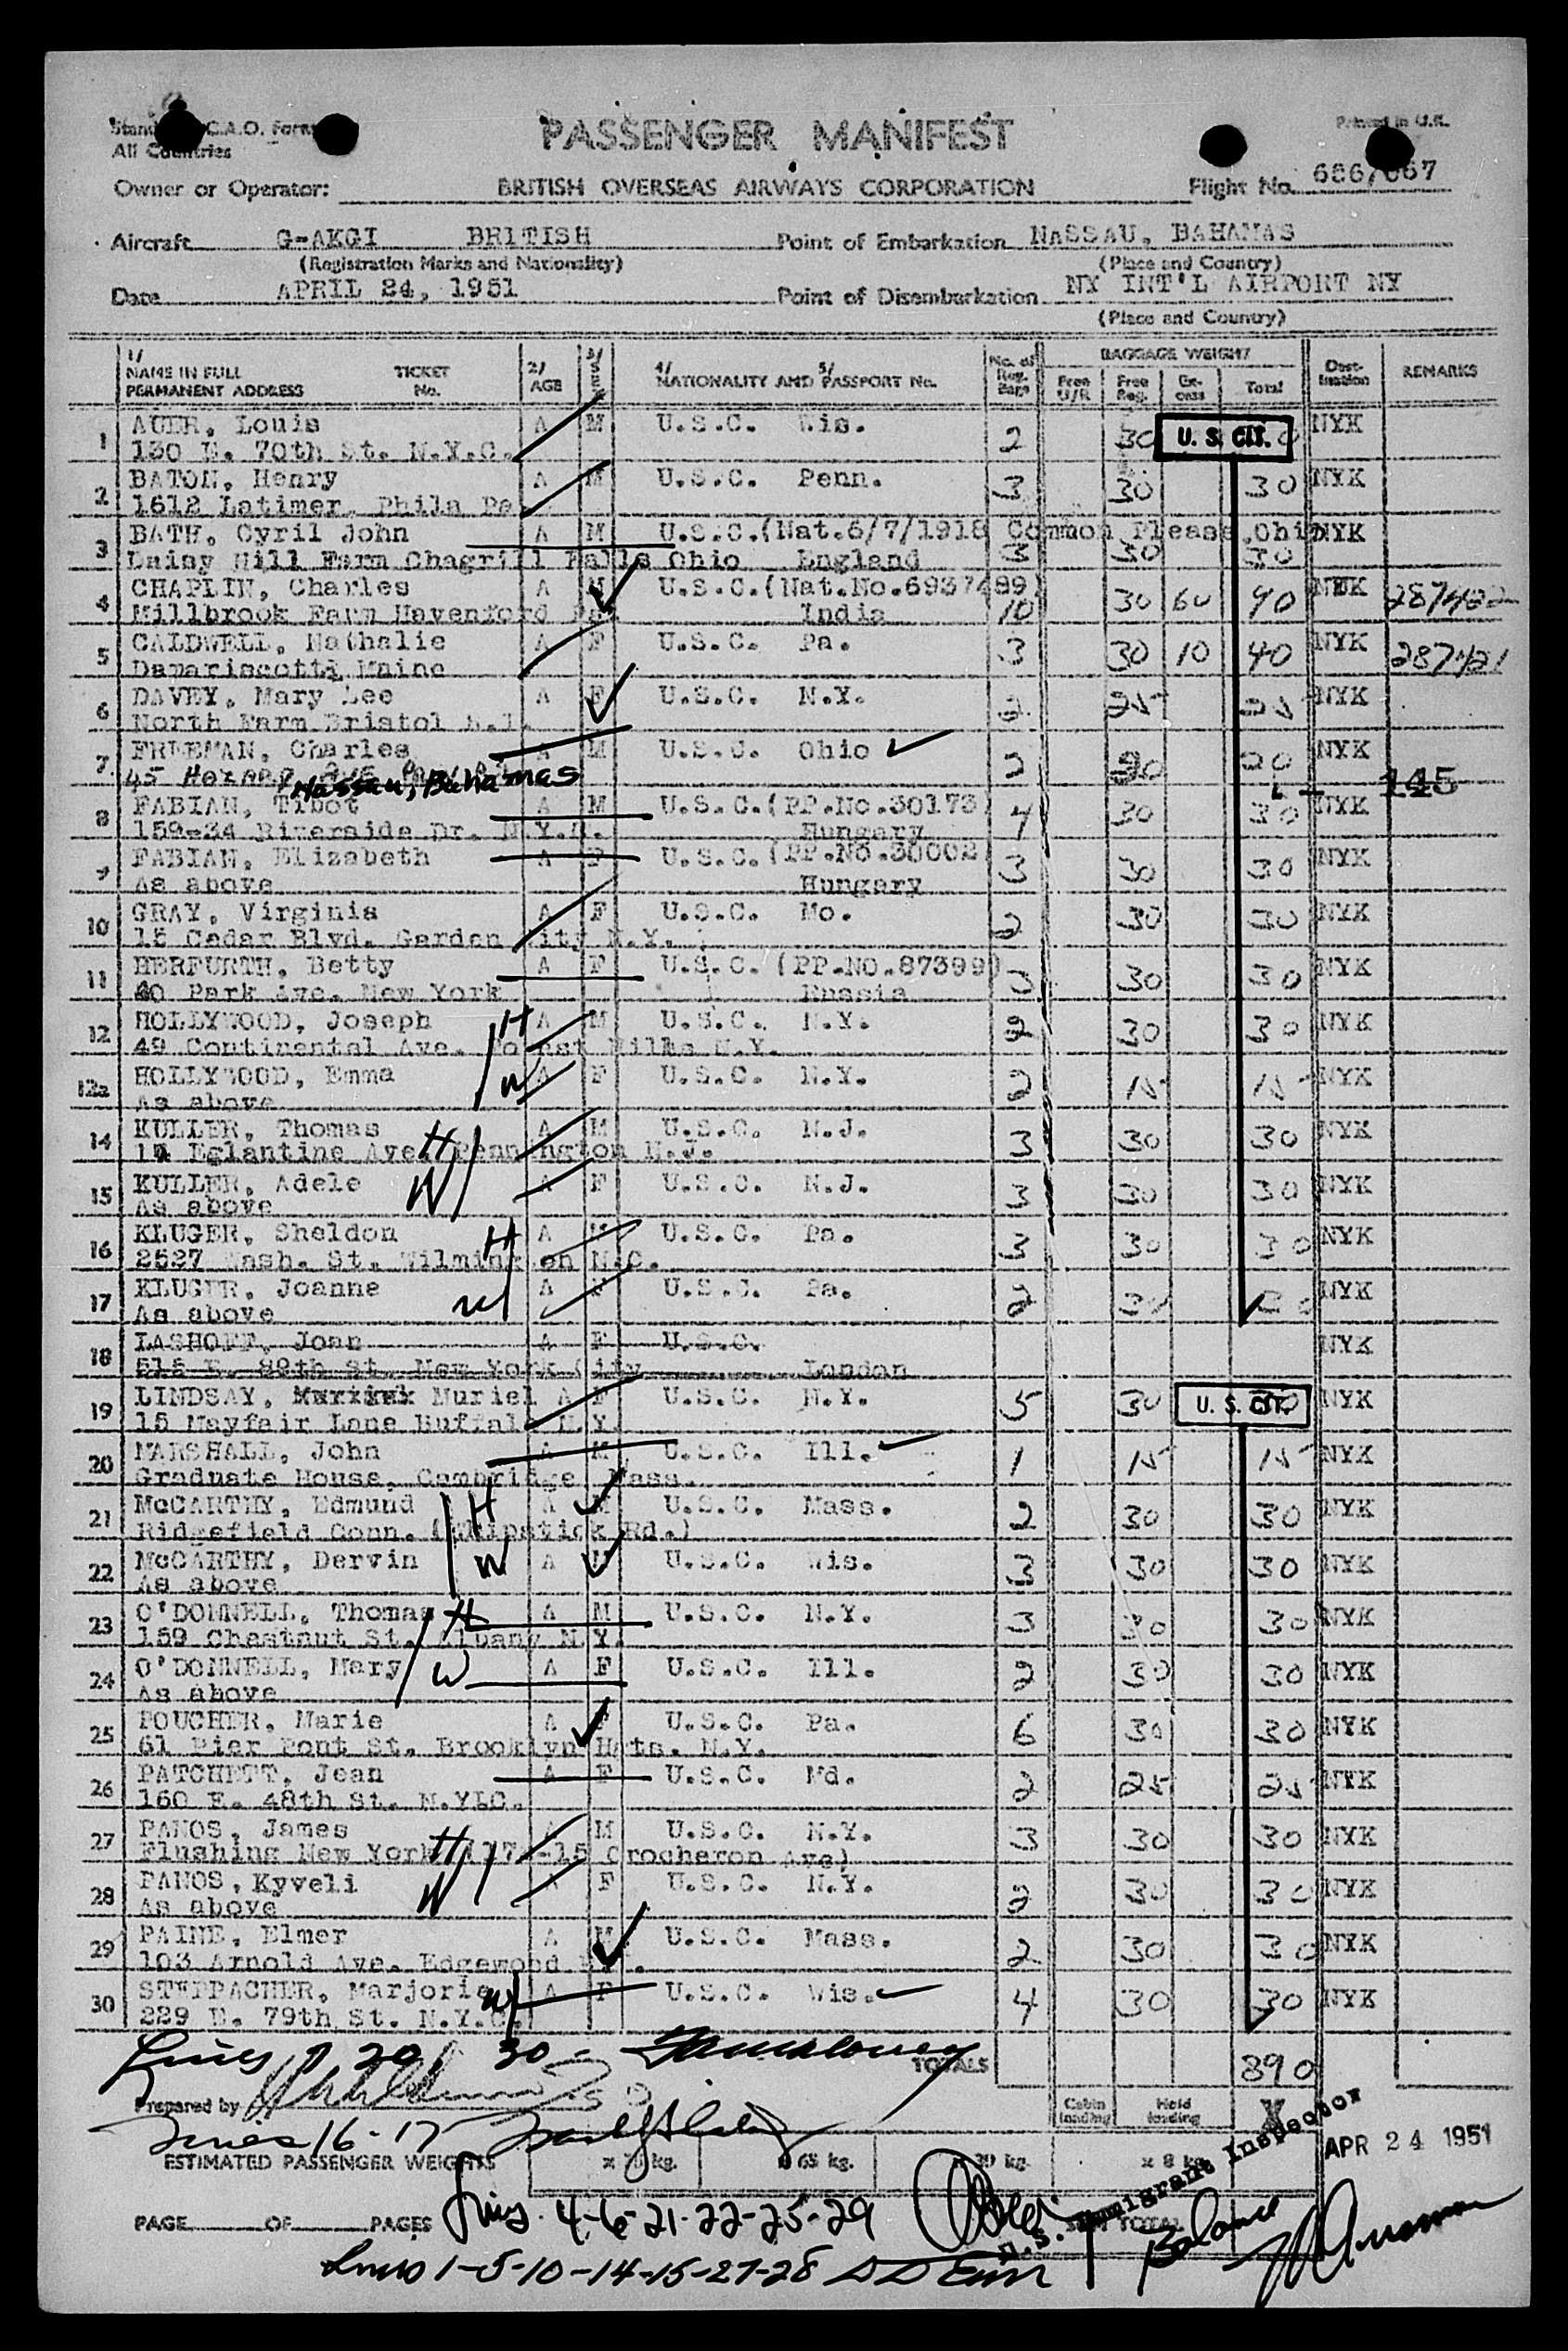 All Countries
PASSENGER MANIFEST
Printed in U.K.
Owner or Operator: BRITISH OVERSEAS AIRWAYS CORPORATION Flight No. 686/687
Aircraft G-AKGI BRITISH Point of Embarkation NASSAU, BAHAMAS
(Registration Marks and Nationality) (Place and Country)
Date APRIL 24, 1951 Point of Disembarkation NY INT'L AIRPORT NY
(Place and Country)
1/ NAME IN FULL PERMANENT ADDRESS TICKET No. 2/ AGE 3/ SEX 4/ NATIONALITY AND 5/ PASSPORT No. No. of Reg. Bags BAGGAGE WEIGHT Free U/R Free Reg. Excess Total Destination REMARKS
1 AUER, Louis A M U.S.C. Wis. 2 30 U. S. CIT. NYK
130 E. 70th St. N.Y.C.
2 BATON, Henry A M U.S.C. Penn. 3 30 30 NYK
1612 Latimer, Phila Pa
3 BATH, Cyril John A M U.S.C.(Nat.6/7/1918 Common Please, Ohio NYK
Daisy Hill Farm Chagrill Falls Ohio England 3 30 30
4 CHAPLIN, Charles A M U.S.C.(Nat.No.6937489) NYK
Millbrook Farm Havenford India 10 30 60 90 287422
5 CALDWELL, Nathalie A F U.S.C. Pa. 3 30 10 40 NYK 287421
Damariscotti Maine
6 DAVEY, Mary Lee A F U.S.C. N.Y. 2 25 25 NYK
North Farm Bristol R.I.
7 FREEMAN, Charles A M U.S.C. Ohio 2 20 20 NYK
45 Nassau, Bahamas 145
8 FABIAN, Tibot A M U.S.C.(PP.No.30173) 4 30 30 NYK
159-34 Riverside Dr. N.Y.C. Hungary
9 FABIAN, Elizabeth A F U.S.C.(PP.No.30002) 3 30 30 NYK
As above Hungary
10 GRAY, Virginia A F U.S.C. Mo. 2 30 30 NYK
15 Cedar Blvd. Garden City N.Y.
11 HERFURTH, Betty A F U.S.C. (PP.NO.87399) 3 30 30 NYK
40 Park Ave. New York Russia
12 HOLLYWOOD, Joseph H A M U.S.C. N.Y. 2 30 30 NYK
49 Continental Ave. Forest Hills N.Y.
12a HOLLYWOOD, Emma W A F U.S.C. N.Y. 2 15 15 NYK
As above
14 KULLER, Thomas H A M U.S.C. N.J. 3 30 30 NYK
14 Eglantine Ave. Pennington N.J.
15 KULLER, Adele W A F U.S.C. N.J. 3 30 30 NYK
As above
16 KLUGER, Sheldon H A M U.S.C. Pa. 3 30 30 NYK
2527 Wash. St. Wilmington N.C.
17 KLUGER, Joanne W A F U.S.C. Pa. 2 30 30 NYK
As above
18 LASHOFF, Joan A F U.S.C. NYK
515 E. 89th St. New York City London
19 LINDSAY, Muriel A F U.S.C. N.Y. 5 30 U. S. CIT. NYK
15 Mayfair Lane Buffalo N.Y.
20 MARSHALL, John A M U.S.C. Ill. 1 15 15 NYK
Graduate House, Cambridge Mass.
21 McCARTHY, Edmund H A M U.S.C. Mass. 2 30 30 NYK
Ridgefield Conn. (Whipstick Rd.)
22 McCARTHY, Dervin W A M U.S.C. Wis. 3 30 30 NYK
As above
23 O'DONNELL, Thomas H A M U.S.C. N.Y. 3 30 30 NYK
159 Chestnut St. Albany N.Y.
24 O'DONNELL, Mary W A F U.S.C. Ill. 2 30 30 NYK
As above
25 POUCHER, Marie A F U.S.C. Pa. 6 30 30 NYK
61 Pier Pont St. Brooklyn Hgts. N.Y.
26 PATCHETT, Jean A F U.S.C. Md. 2 25 25 NYK
160 E. 48th St. N.Y.C.
27 PANOS, James H A M U.S.C. N.Y. 3 30 30 NYK
Flushing New York -15 Crocheron Ave)
28 PANOS, Kyveli W A F U.S.C. N.Y. 2 30 30 NYK
As above
29 PAINE, Elmer A M U.S.C. Mass. 2 30 30 NYK
103 Arnold Ave. Edgewood
30 STEPPACHER, Marjorie W A F U.S.C. Wis. 4 30 30 NYK
229 E. 79th St. N.Y.C.
Lines 20, 30 - TOTALS 890
Prepared by Cabin loading Hold loading
Lines 16-17 APR 24 1951
ESTIMATED PASSENGER WEIGHTS x 65 kg. x 8 kg.
U.S. Immigrant Inspector
PAGE OF PAGES Lines 4-6-21-22-25-29 TOTAL Balance
Lines 1-5-10-14-15-27-28